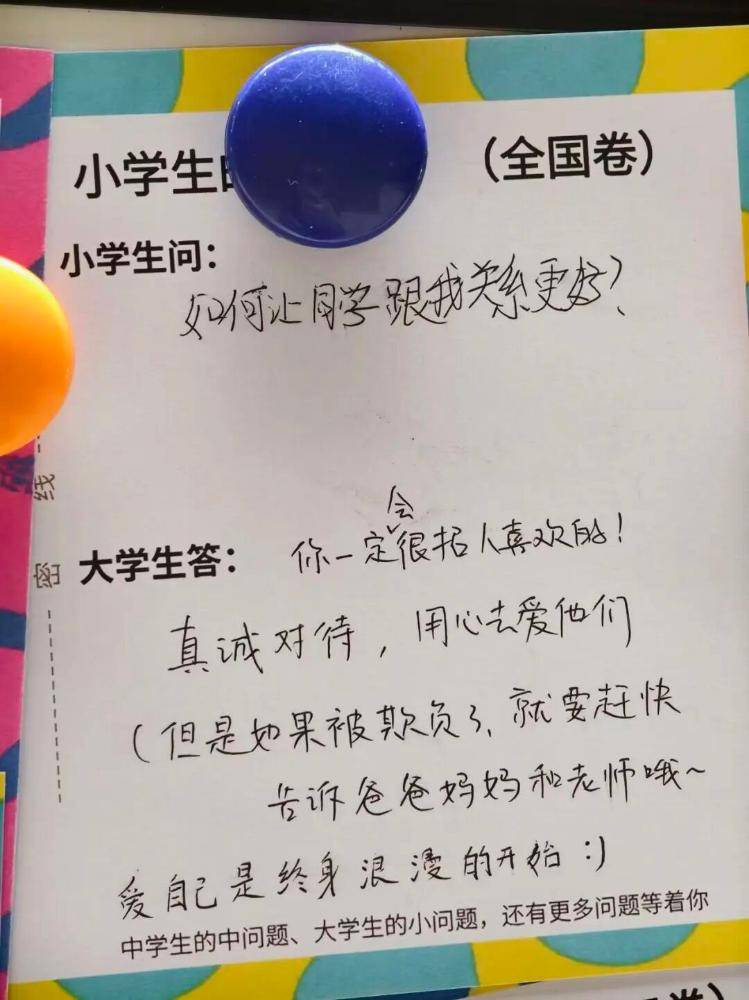 小学生的 （全国卷）
小学生问：
如何让同学跟我关系更好？
大学生答： 你一定会很招人喜欢的！
真诚对待，用心去爱他们
（但是如果被欺负了、就要赶快
告诉爸爸妈妈和老师哦～
爱自己是终身浪漫的开始：)
中学生的中问题、大学生的小问题，还有更多问题等着你
密 线
卷）